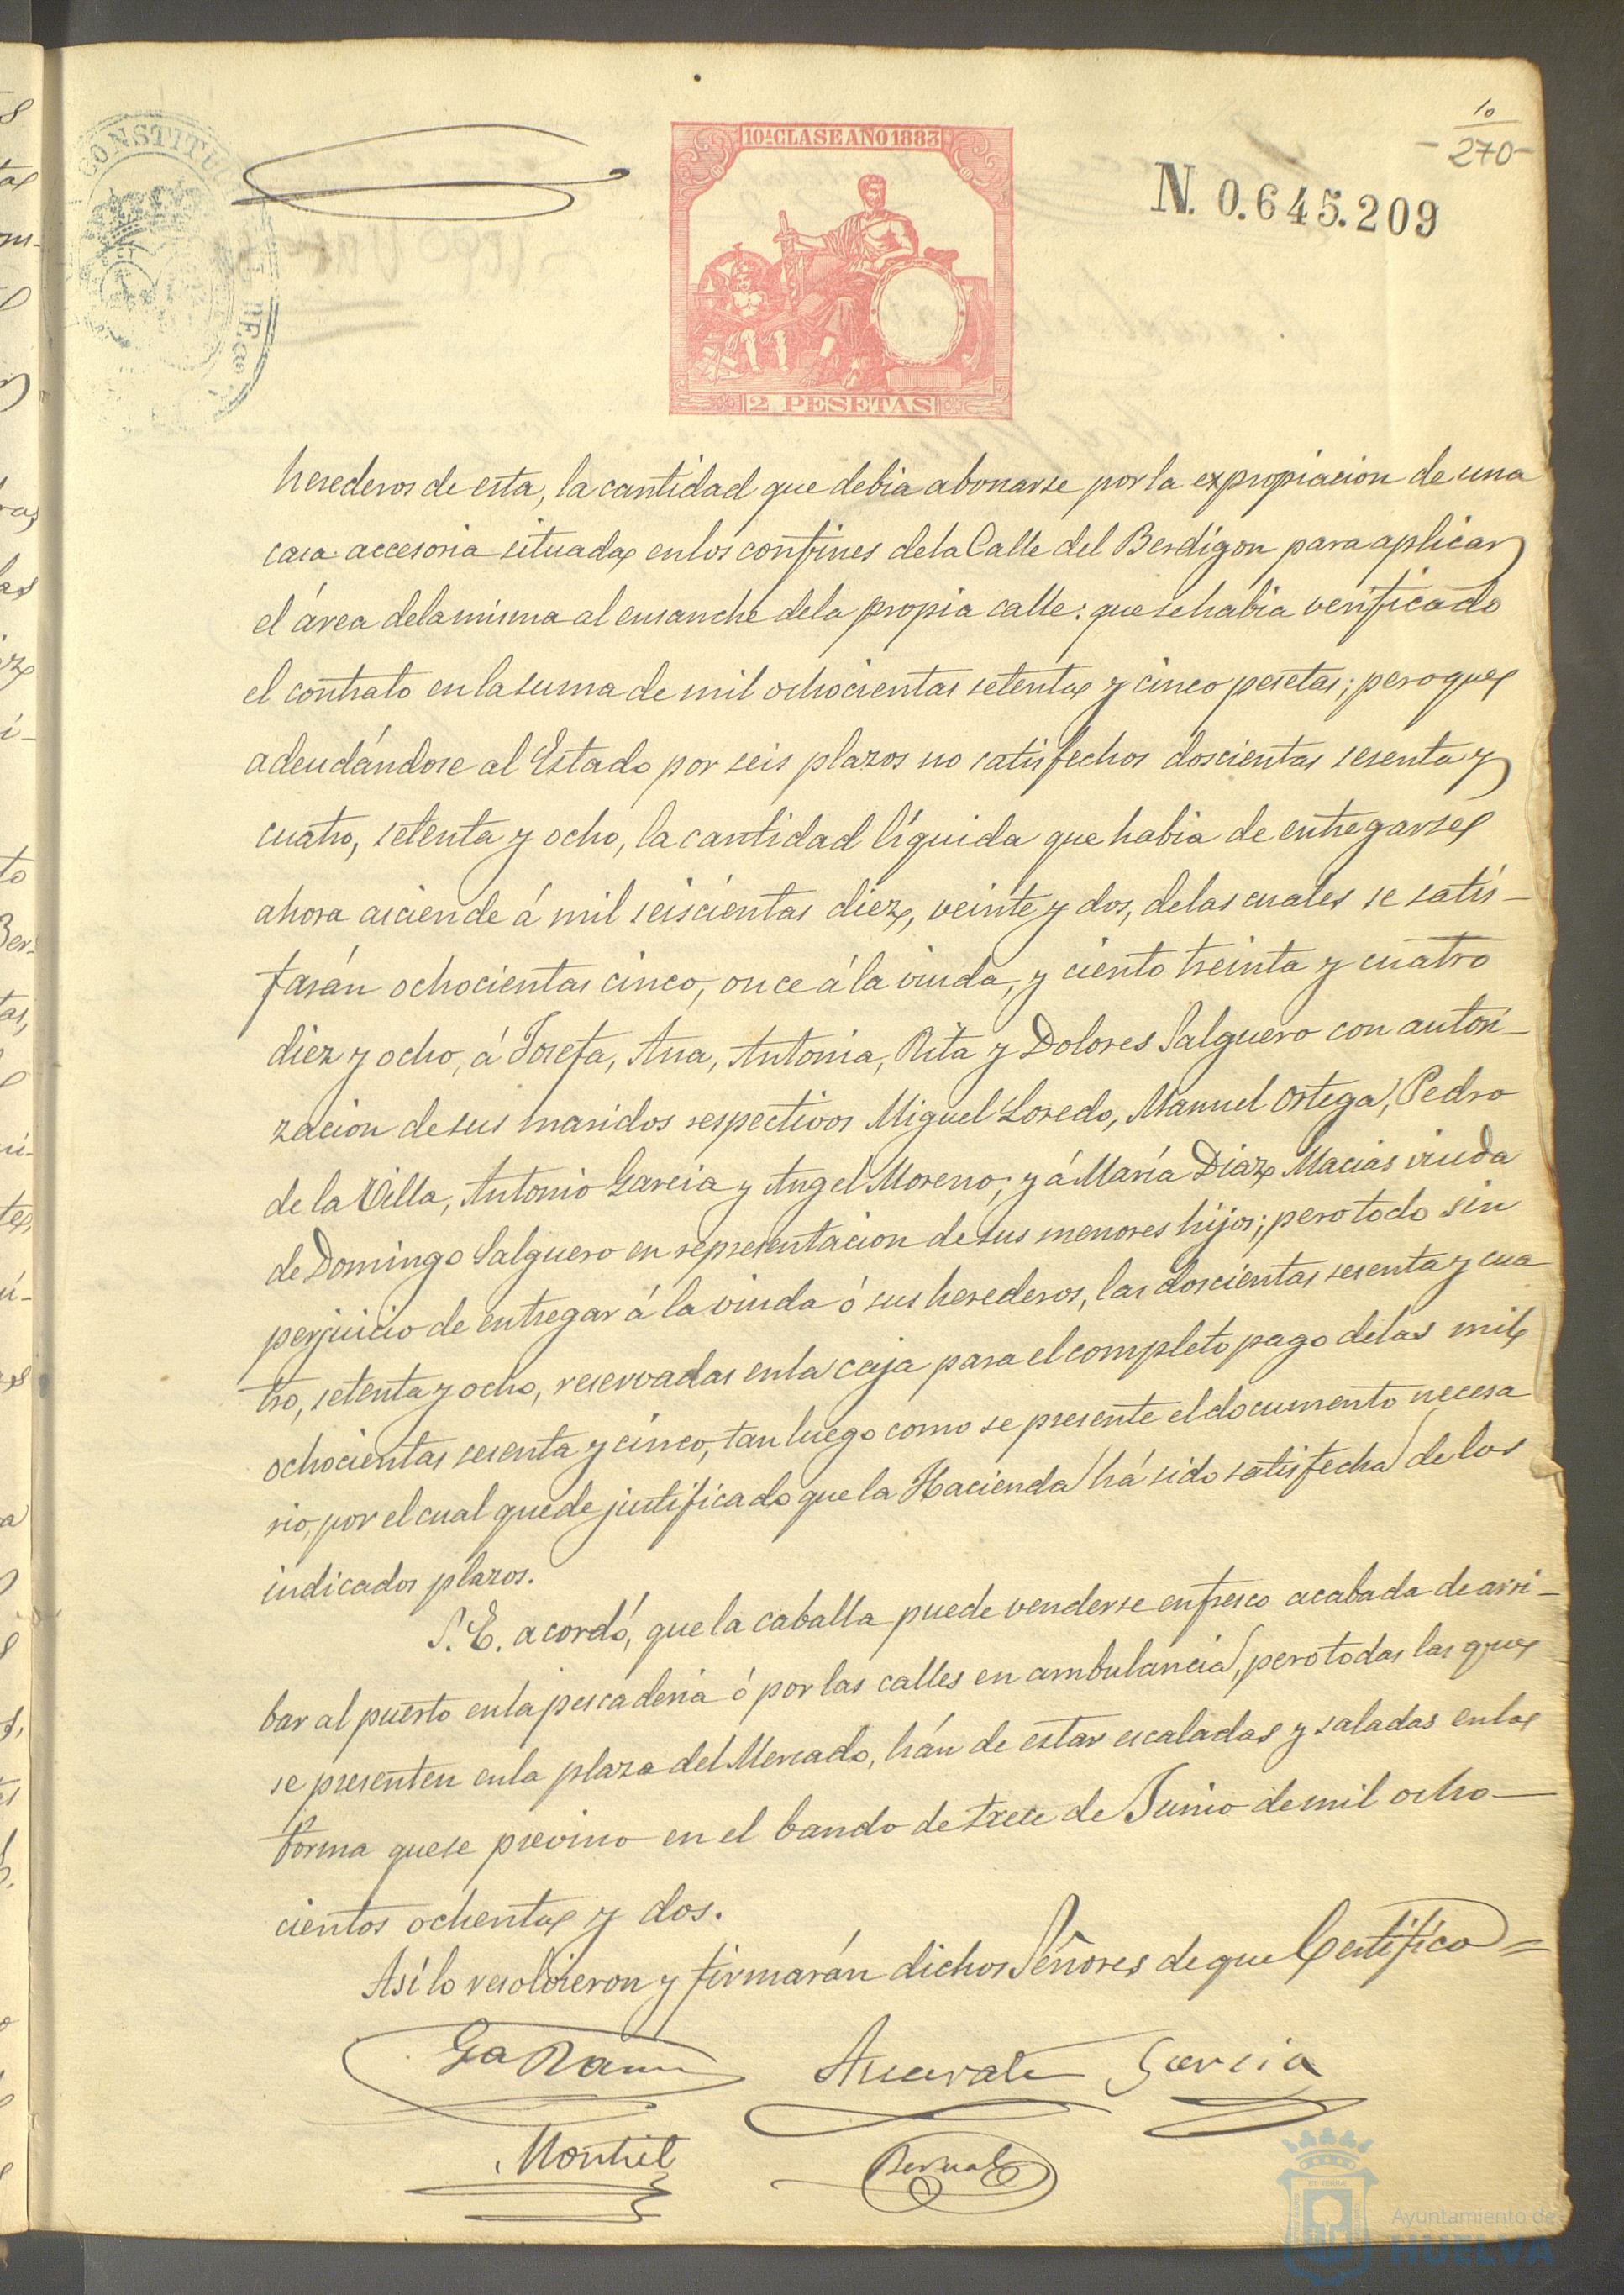 10
270
CONSTITU
10ª CLASE AÑO 1883
N. 0.645.209
2 PESETAS
herederos de esta, la cantidad que debia abonarse por la expropiacion de una
casa accesoria situada en los confines de la Calle del Berdigon para aplicar
el área de la misma al ensanche de la propia calle: que se habia verificado
el contrato en la suma de mil ochocientas setenta y cinco pesetas; pero que
adeudándose al Estado por seis plazos no satisfechos doscientas sesenta y
cuatro, setenta y ocho, la cantidad líquida que habia de entregarse
ahora asciende á mil seiscientas diez, veinte y dos, de las cuales se satis-
farán ochocientas cinco, once á la viuda, y ciento treinta y cuatro
diez y ocho, á Josefa, Ana, Antonia, Rita y Dolores Salguero con autori-
zacion de sus maridos respectivos Miguel Loredo, Manuel Ortega, Pedro
de la Villa, Antonio Garcia y Angel Moreno; y á María Diaz Macias viuda
de Domingo Salguero en representacion de sus menores hijos; pero todo sin
perjuicio de entregar á la viuda ó sus herederos, las doscientas sesenta y cua
tro, setenta y ocho, reservadas en la caja para el completo pago de las mil
ochocientas sesenta y cinco, tan luego como se presente el documento necesa
rio, por el cual quede justificado que la Hacienda há sido satisfecha de los
indicados plazos.
S. E. acordó, que la caballa puede venderse en fresco acabada de arri-
bar al puerto en la pescaderia ó por las calles en ambulancia, pero todas las que
se presenten en la plaza del Mercado, hán de estar escaladas y saladas en la
forma que se previno en el bando de trece de Junio de mil ocho-
cientos ochenta y dos.
Asi lo resolvieron y firmarán dichos Señores de que Certifico =
Garcia
Montiel
Bernal
Ayuntamiento de
HUELVA